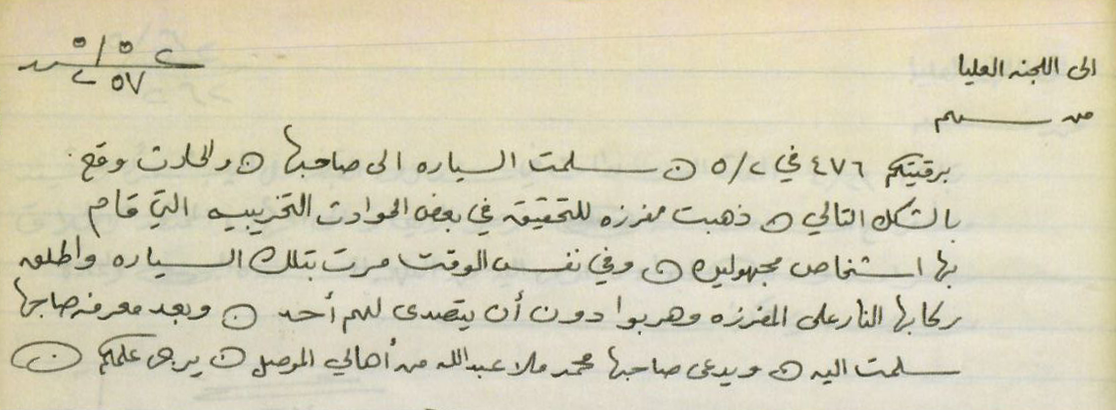 الى اللجنه العليا
٥/٥
٢٥٧
من
برقيتكم ٤٧٦ في ٥/٢ ن سلمت السياره الى صاحبها ن والحادث وقع
بالشكل التالي ن ذهبت مفرزه للتحقيق في بعض الحوادث التخريبيه التي قام
بها اشخاص مجهولين ن وفي نفس الوقت مرت بتلك السياره واطلق
ركابها النار على المفرزه وهربوا دون أن يتصدى لهم أحد ن وبعد معرفة صاحبها
سلمت اليه ن ويدعى صاحبها محمد ملا عبدالله من أهالي الموصل ن يرجى علمكم ن